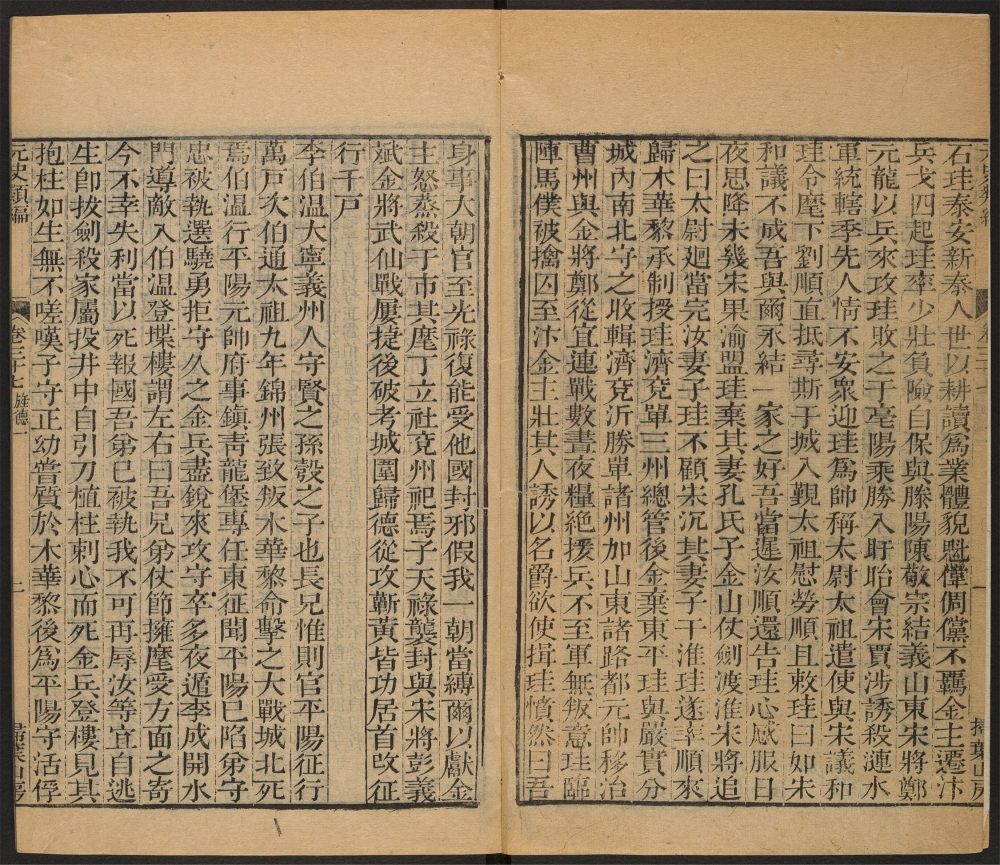 石珪泰安新泰人世以耕讀爲業體貌魁偉倜儻不羈金主遷汴
兵戈四起珪率少壯負險自保與滕陽陳敬宗結義山東宋將鄭
元龍以兵來攻珪敗之于亳陽乘勝入盱眙會宋賈涉誘殺漣水
軍統轄季先人情不安衆迎珪爲帥稱太尉太祖遣使與宋議和
珪令麾下劉順直抵尋斯于城入覲太祖慰勞順且敕珪曰如宋
和議不成吾與爾永結一家之好吾當遲汝順還告珪心感服日
夜思降未幾宋果渝盟珪棄其妻孔氏子金山仗劍渡淮宋將追
之曰太尉迴當完汝妻子珪不顧宋沉其妻子于淮珪遂率順來
歸木華黎承制授珪濟兗單三州總管後金棄東平珪與嚴實分
城內南北守之收輯濟兗沂勝單諸州加山東諸路都元帥移治
曹州與金將鄭從宜連戰數晝夜糧絶援兵不至軍無叛意珪臨
陣馬僕破擒囚至汴金主壯其人誘以名爵欲使揖珪憤然曰吾
身事大朝官至光祿復能受他國封邪假我一朝當縛爾以獻金
主怒烝殺于市其麾丁立社兗州祀焉子天祿襲封與宋將彭義
斌金將武仙戰屢捷後破考城圍歸德從攻蘄黃皆功居首改征
行千戸
李伯温大寧義州人守賢之孫㲄之子也長兄惟則官平陽征行
萬戸次伯通太祖九年錦州張致叛木華黎命擊之大戰城北死
焉伯温行平陽元帥府事鎮靑龍堡專任東征聞平陽已陷弟守
忠被執選驍勇拒守久之金兵盡銳來攻守卒多夜遁李成開水
門導敵入伯温登堞樓謂左右曰吾兄弟仗節擁麾受方面之寄
今不幸失利當以死報國吾弟已被執我不可再辱汝等宜自逃
生卽拔劍殺家屬投井中自引刀植柱刺心而死金兵登樓見其
抱柱如生無不嗟嘆子守正幼嘗質於木華黎後爲平陽守活俘
元史類編
卷三十七 旌德一
二
掃葉山房